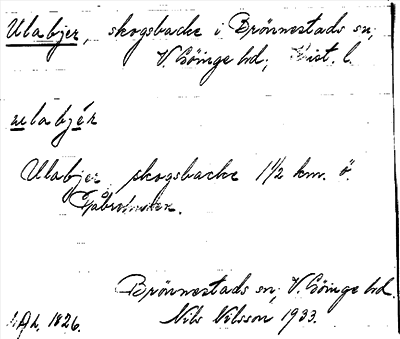 Ulabjer, skogsbacke i Brönnestads sn,
V. Göinge hd; Krist. l.
ulabjér
Ulabjer skogsbacke 1 1/2 km. ö.
Brönnestads sn, V. Göinge hd.
Nils Nilsson 1933.
1826.